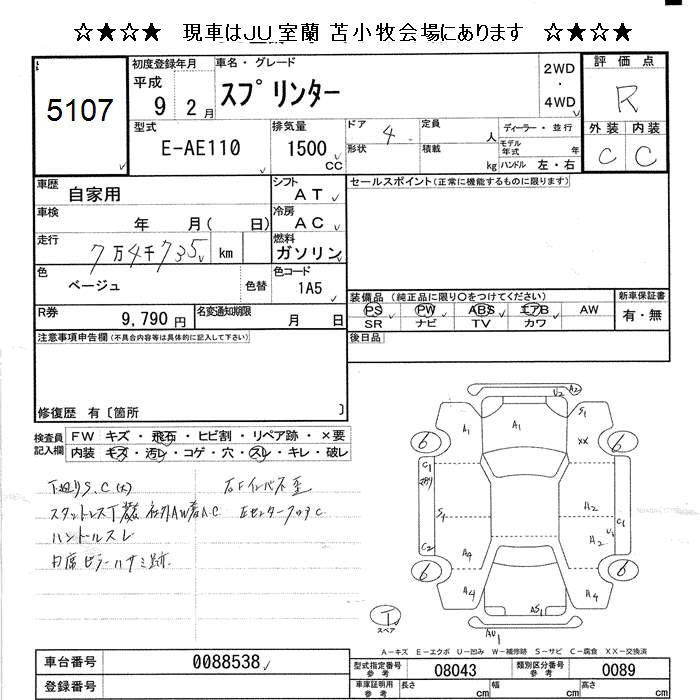 ☆★☆★ 現車はJU室蘭 苫小牧会場にあります ☆★☆★
5107
初度登録年月 車名・グレード 2WD・4WD 評価点
平成 9年 2月 スプリンター R
型式 排気量 ドア 4 定員 人 ディーラー・並行 外装 内装
E-AE110 1500cc 形状 積載 kg モデル年式 年 ハンドル 左・右 C C
車歴 自家用 シフト AT セールスポイント(正常に機能するものに限ります)
車検 年 月( 日) 冷房 AC
走行 7万4千735 km 燃料 ガソリン
色 ベージュ 色替 色コード 1A5
装備品 (純正品に限り○をつけてください) 新車保証書
R券 9,790円 名変通知期限 月 日
PS PW ABS エアB AW 有・無
SR ナビ TV カワ
注意事項申告欄(不具合内容等は具体的に記入して下さい) 後日品
修復歴 有〔箇所 〕
検査員記入欄 FW キズ・飛石・ヒビ割・リペア跡・×要
内装 キズ・汚レ・コゲ・穴・スレ・キレ・破レ
S.C(大)
ハンドルスレ
A2
U2
A1 A1 S1
6 6
XX
C1
S1 A2
U1 C1
A2
C2 A4
6 6
A4 A4
AS1
T
スペア
AU1
A-キズ E-エクボ U-凹み W-補修跡 S-サビ C-腐食 XX-交換済
車台番号 0088538 型式指定番号 参考 08043 類別区分番号 参考 0089
登録番号 車庫証明用 参考 長さ cm 幅 cm 高さ cm